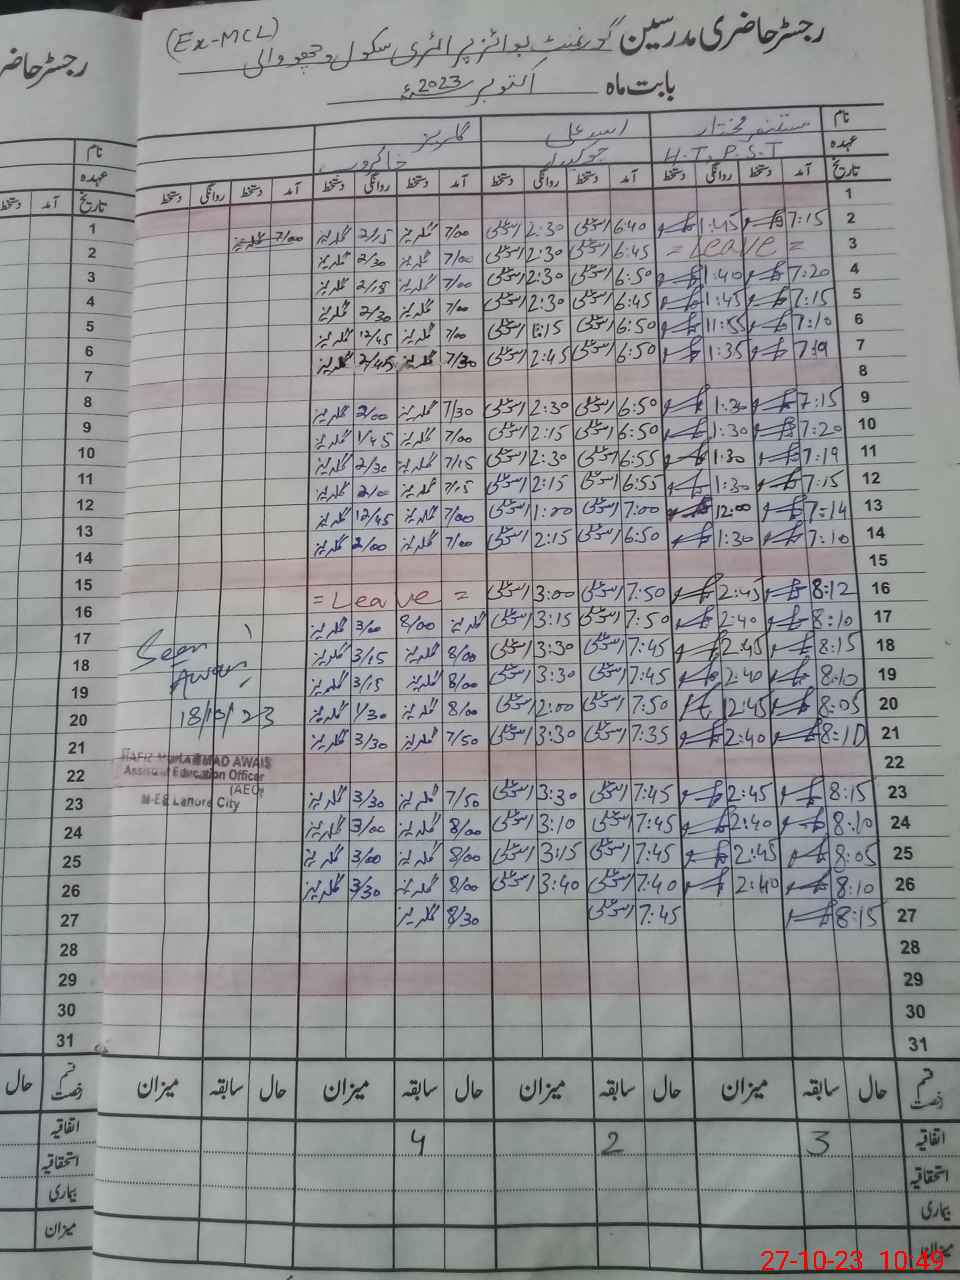 رجسٹر حاضری مدرسین گورنمنٹ بوائز پرائمری سکول وچھووالی (Ex-MCL)
بابت ماہ اکتوبر 2023ء
نام مستنصر مختار اسد علی گلریز
عہدہ H.T, P.S.T چوکیدار خاکروب
تاریخ آمد دستخط روانگی دستخط آمد دستخط روانگی دستخط آمد دستخط روانگی دستخط آمد دستخط روانگی دستخط
1
2 7:15 1:45 6:40 اسد علی 2:30 اسد علی 7/00 گلریز 2/15 گلریز 7/00 گلریز
3 = Leave = 6:45 اسد علی 2:30 اسد علی 7/00 گلریز 2/30 گلریز
4 7:20 1:40 6:50 اسد علی 2:30 اسد علی 7/00 گلریز 2/15 گلریز
5 7:15 1:45 6:45 اسد علی 2:30 اسد علی 7/00 گلریز 2/30 گلریز
6 7:10 11:55 6:50 اسد علی اسد علی 7/00 گلریز 12/45 گلریز
7 7:19 1:35 6:50 اسد علی 2:45 اسد علی 7/30 گلریز 2/45 گلریز
8
9 7:15 1:30 6:50 اسد علی 2:30 اسد علی 7/30 گلریز 2/00 گلریز
10 7:20 1:30 6:50 اسد علی 2:15 اسد علی 7/00 گلریز 1/45 گلریز
11 7:19 1:30 6:55 اسد علی 2:30 اسد علی 7/15 گلریز 2/30 گلریز
12 7:15 1:30 6:55 اسد علی 2:15 اسد علی 7/15 گلریز 2/00 گلریز
13 7:14 12:00 7:00 اسد علی 1:00 اسد علی 7/00 گلریز 12/45 گلریز
14 7:10 1:30 6:50 اسد علی 2:15 اسد علی 7/00 گلریز 2/00 گلریز
15
16 8:12 2:45 7:50 اسد علی 3:00 اسد علی = Leave =
17 8:10 2:40 7:50 اسد علی 3:15 اسد علی گلریز 8/00 3/00 گلریز
18 8:15 2:45 7:45 اسد علی 3:30 اسد علی 8/00 گلریز 3/15 گلریز
19 8:10 2:40 7:45 اسد علی 3:30 اسد علی 8/00 گلریز 3/15 گلریز
20 8:05 12:45 7:50 اسد علی 2:00 اسد علی 8/00 گلریز 1/30 گلریز
21 8:10 2:40 7:35 اسد علی 3:30 اسد علی 7/50 گلریز 3/30 گلریز
22
23 8:15 2:45 7:45 اسد علی 3:30 اسد علی 7/50 گلریز 3/30 گلریز
24 8:10 2:40 7:45 اسد علی 3:10 اسد علی 8/00 گلریز 3/00 گلریز
25 8:05 2:45 7:45 اسد علی 3:15 اسد علی 8/00 گلریز 3/00 گلریز
26 8:10 2:40 7:40 اسد علی 3:40 اسد علی 8/00 گلریز 3/30 گلریز
27 8:15 7:45 اسد علی 8/30 گلریز
28
29
30
31
Seen
Awais
18/10/23
HAFIZ MUHAMMAD AWAIS
Assistant Education Officer
(AEO)
M-EE Lahore City
قسم رخصت حال سابقہ میزان حال سابقہ میزان حال سابقہ میزان حال سابقہ میزان
اتفاقیہ 3 2 4
استحقاقیہ
بیماری
میزان
رجسٹر حاضر
نام
عہدہ
تاریخ آمد دستخط
1
2
3
4
5
6
7
8
9
10
11
12
13
14
15
16
17
18
19
20
21
22
23
24
25
26
27
28
29
30
31
قسم رخصت حال
اتفاقیہ
استحقاقیہ
بیماری
میزان
27-10-23 10:49